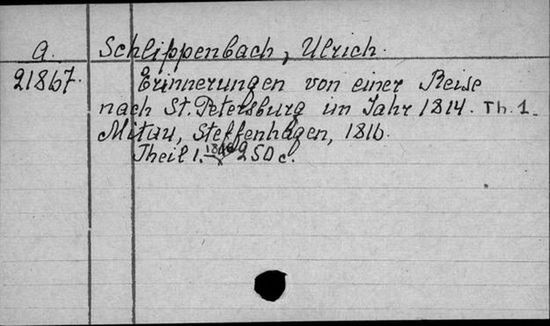 A. Schlippenbach, Ulrich.
21867. Erinnerungen von einer Reise
nach St. Petersburg im Jahr 1814. Th. 1.
Mitau, Steffenhagen, 1816.
Theil 1. 250 c.